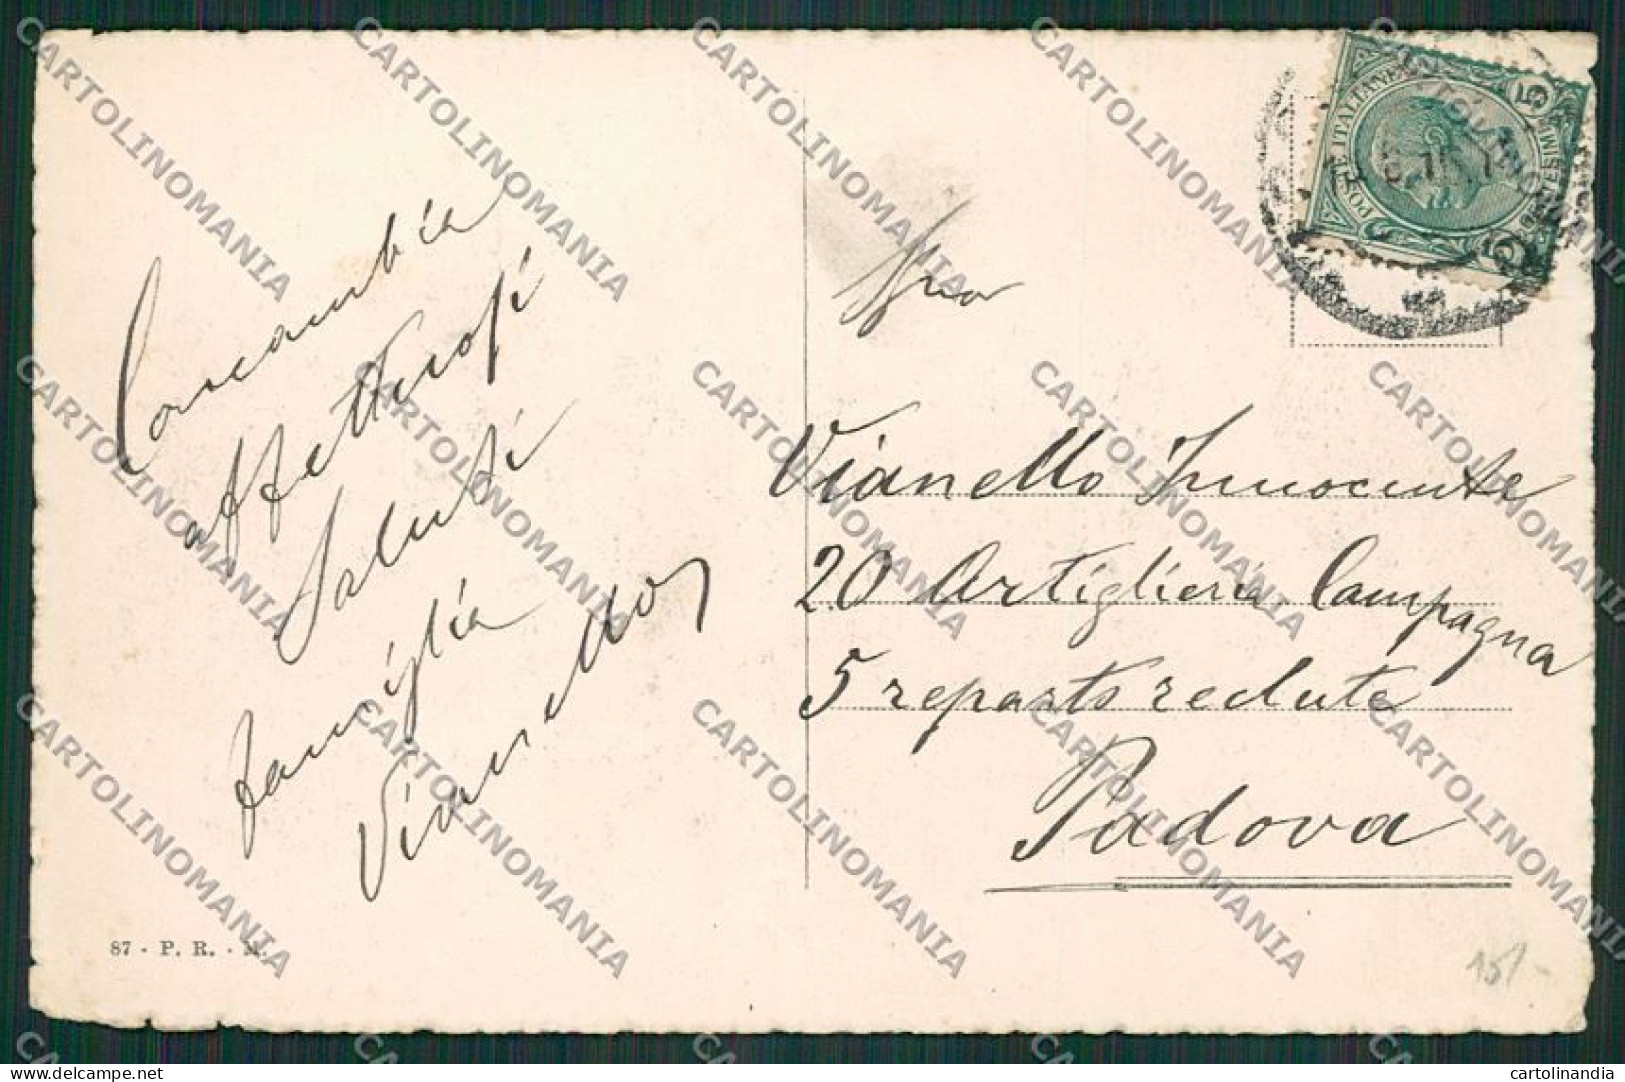 Concambia
affettuosi
Saluti
famiglia
Vianello
87 - P. R. - M.
POSTE ITALIANE
5
5
Vianello Innocente
20 Artiglieria Campagna
5 reparto reclute
Padova
15/-
CARTOLINOMANIA
cartolinandia.it
cartolinandia